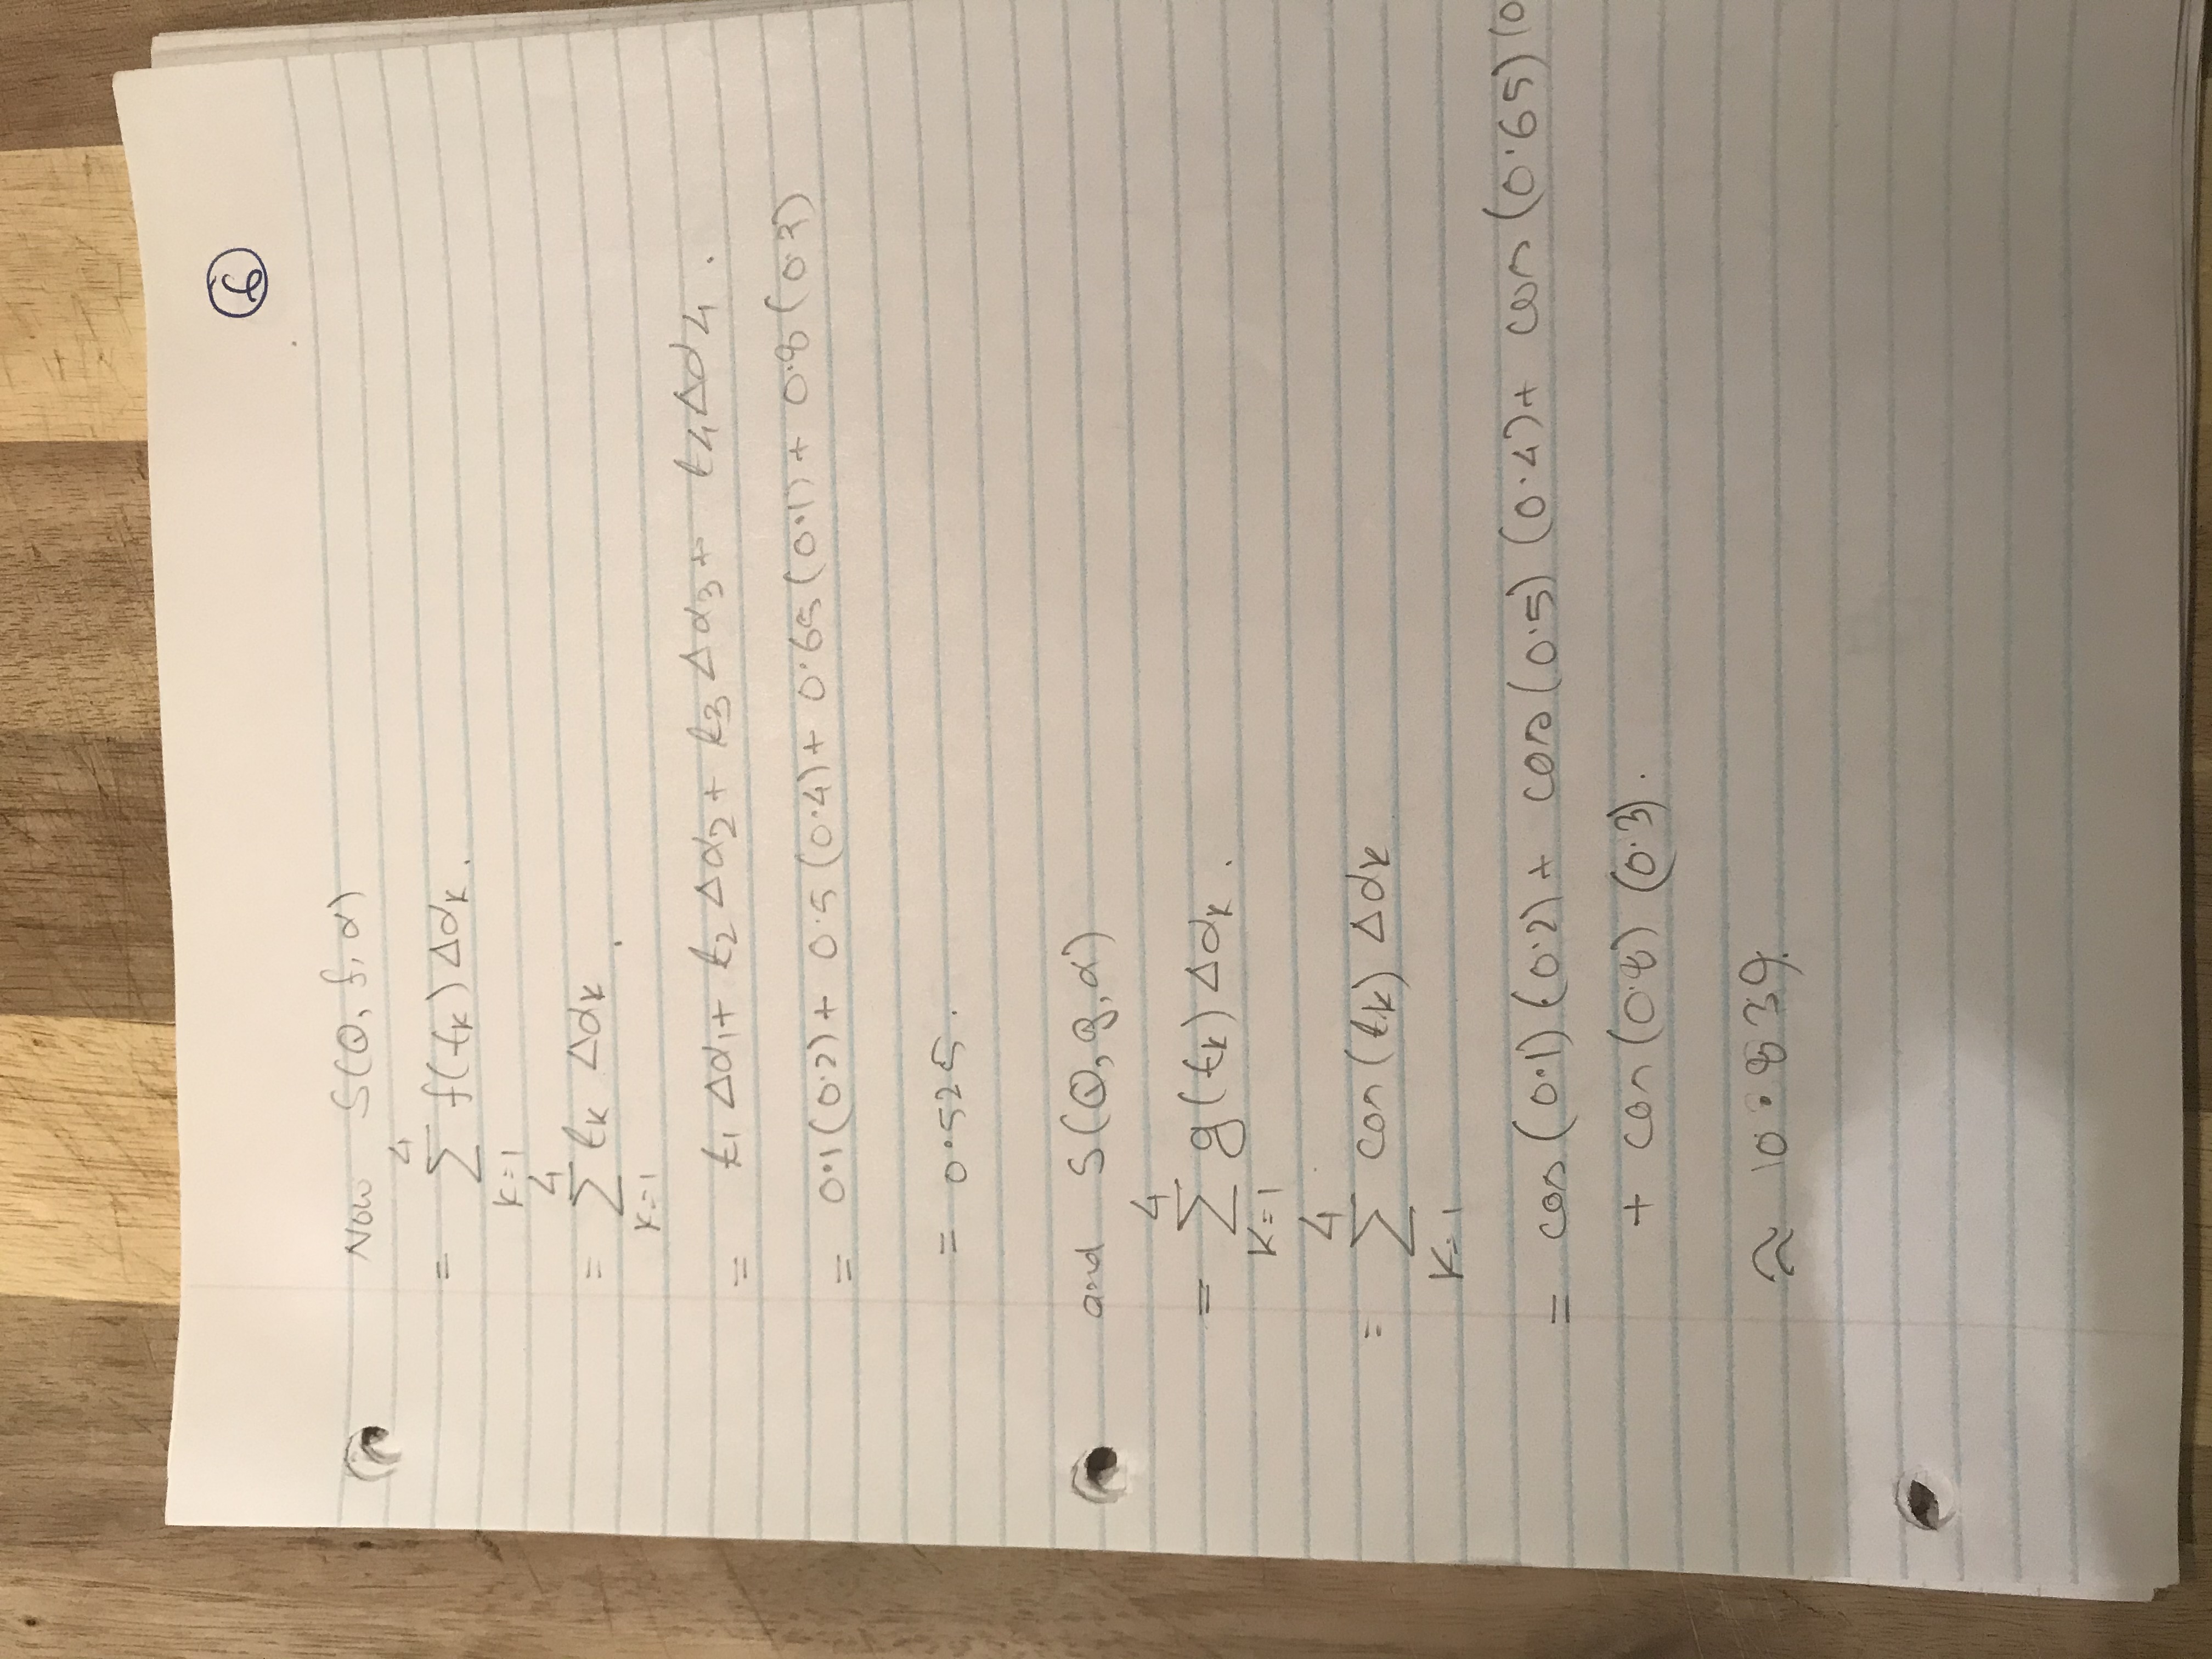 6
Now S(Q, f, α)
= 4∑k=1 f(tk) Δαk.
= 4∑k=1 tk Δαk.
= t1 Δα1 + t2 Δα2 + t3 Δα3 + t4 Δα4.
= 0.1(0.2) + 0.5(0.4) + 0.65(0.1) + 0.8(0.3)
= 0.525.
and S(Q, g, α)
= 4∑K=1 g(tk) Δαk.
= 4∑K=1 cos(tk) Δαk
= cos(0.1)(0.2) + cos(0.5)(0.4) + cos(0.65)(0
+ cos(0.8)(0.3).
≈ 0.839.